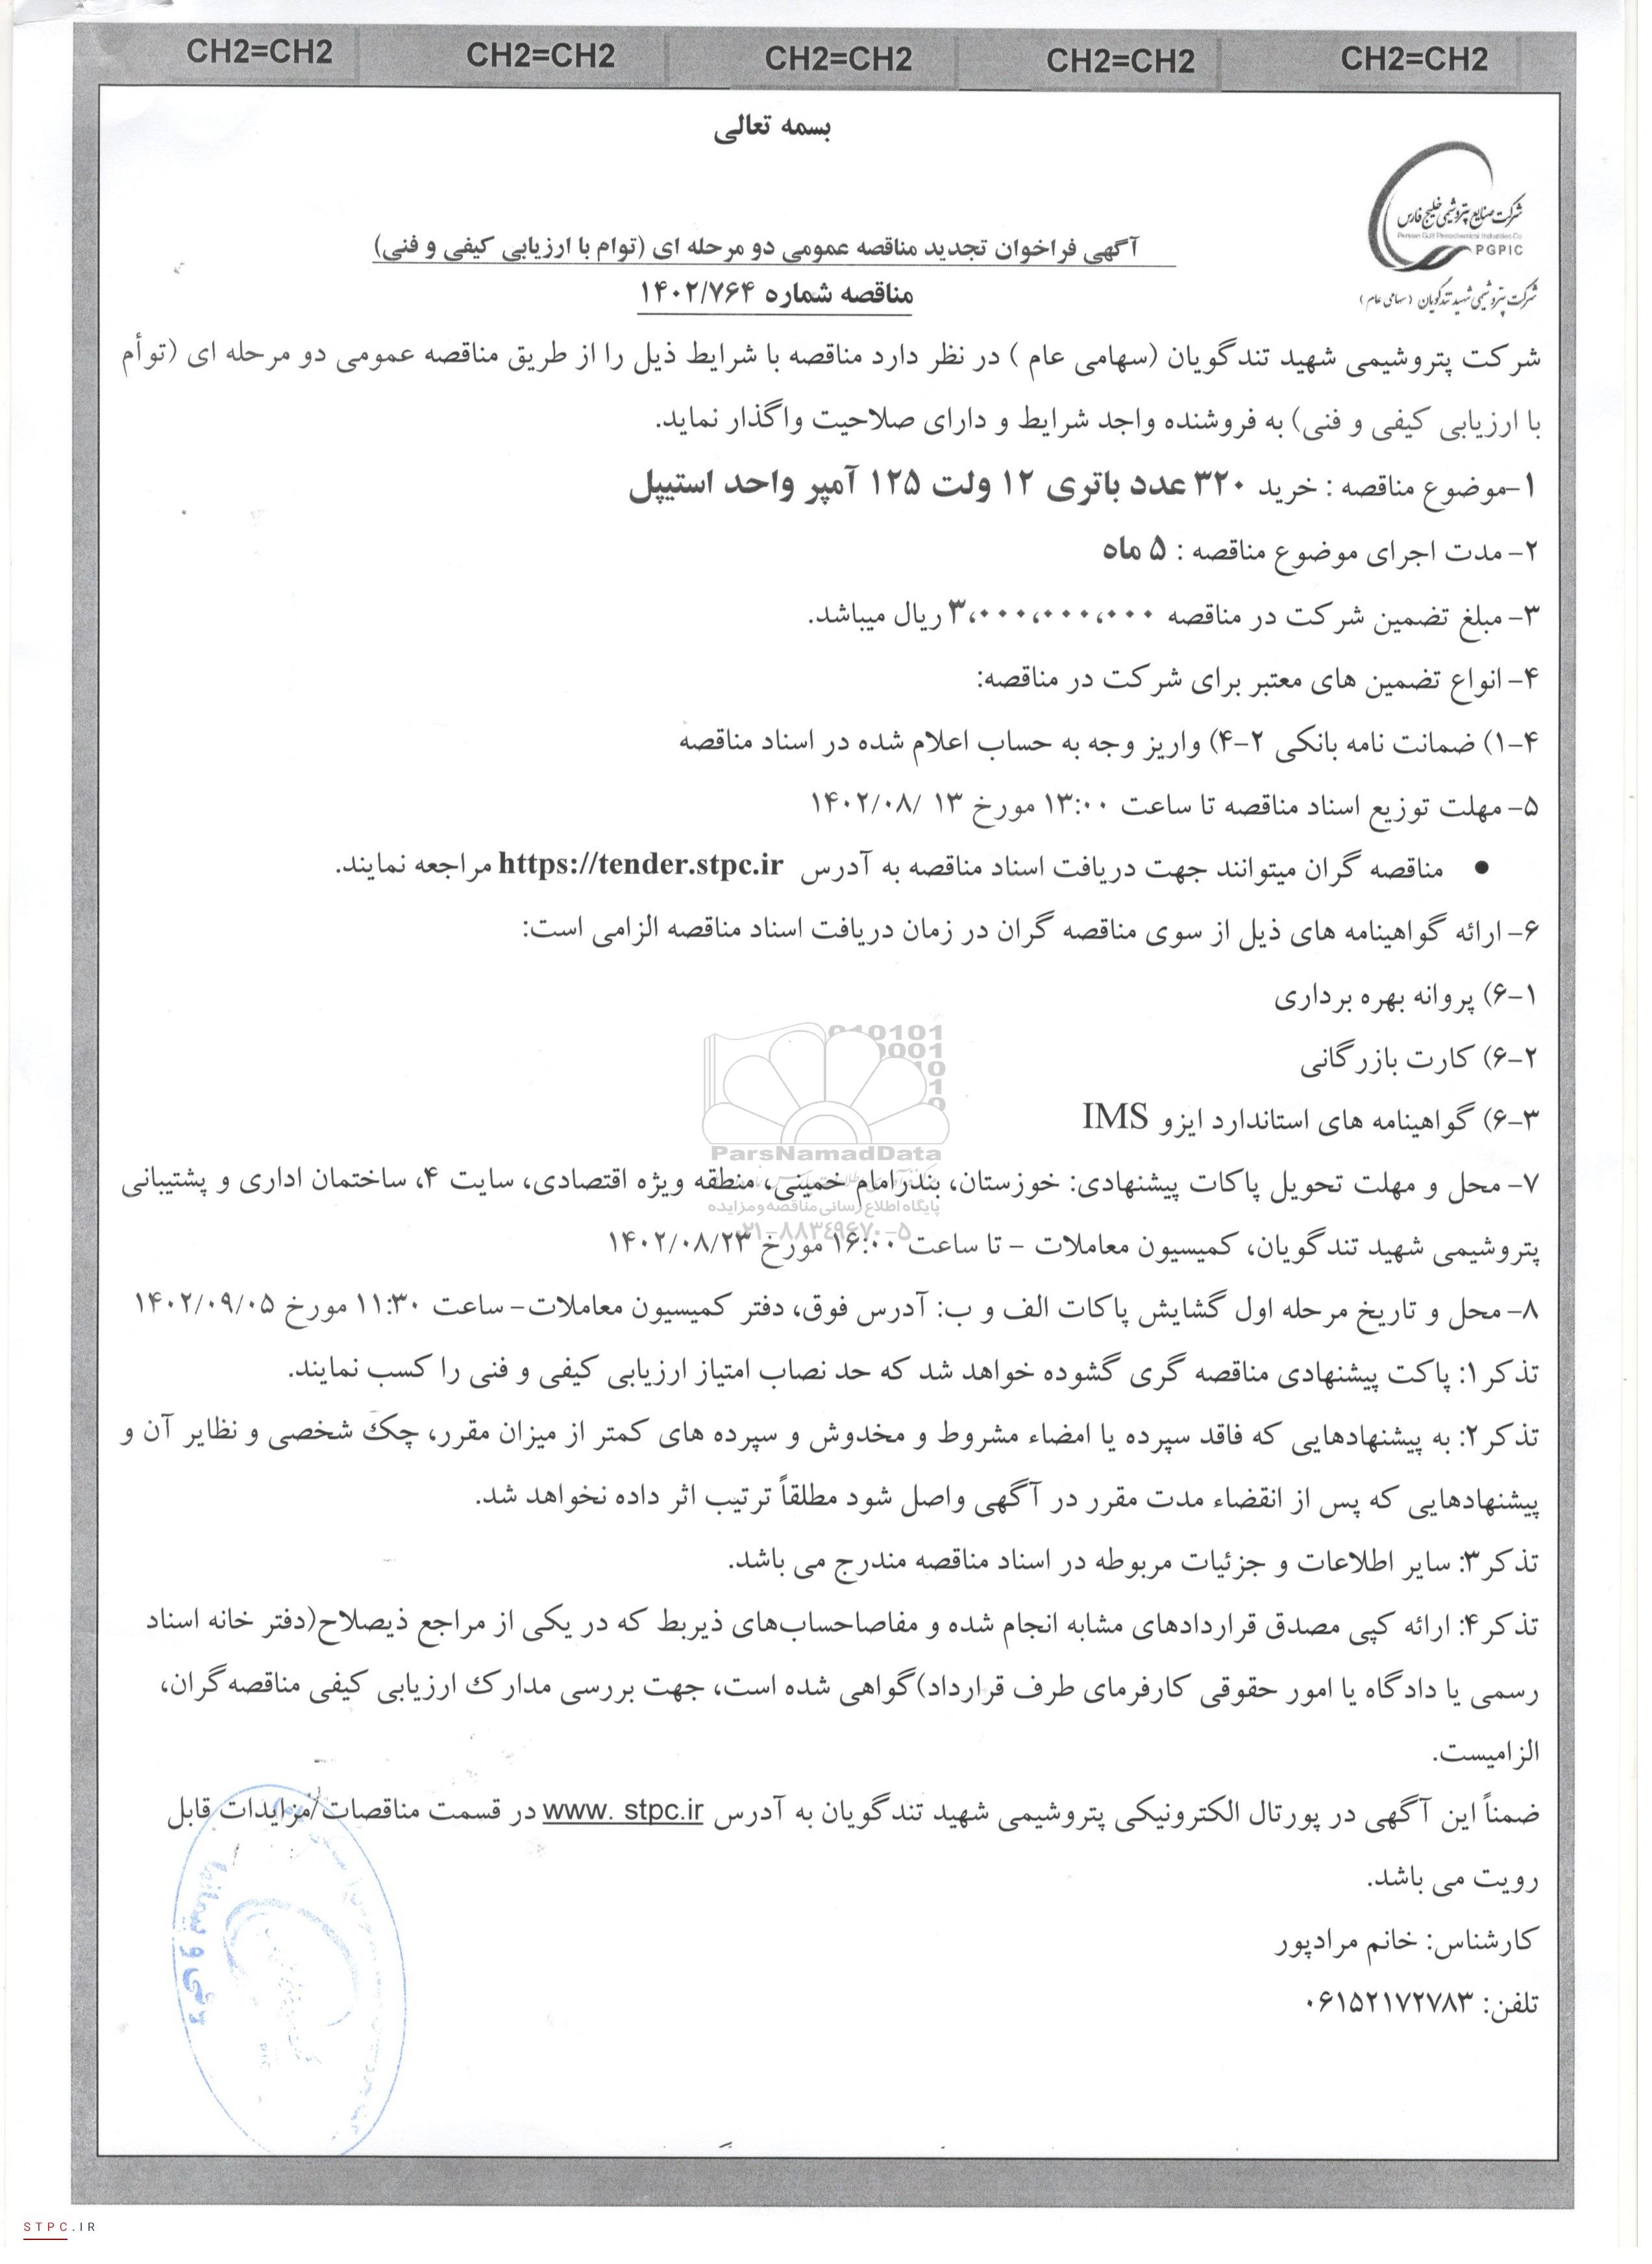 CH2=CH2 CH2=CH2 CH2=CH2 CH2=CH2 CH2=CH2
بسمه تعالی
شرکت صنایع پتروشیمی خلیج فارس
Persian Gulf Petrochemical Industries Co
PGPIC
شرکت پتروشیمی شهید تندگویان (سهامی عام)
آگهی فراخوان تجدید مناقصه عمومی دو مرحله ای (توام با ارزیابی کیفی و فنی)
مناقصه شماره ۱۴۰۲/۷۶۴
شرکت پتروشیمی شهید تندگویان (سهامی عام ) در نظر دارد مناقصه با شرایط ذیل را از طریق مناقصه عمومی دو مرحله ای (توأم
با ارزیابی کیفی و فنی) به فروشنده واجد شرایط و دارای صلاحیت واگذار نماید.
۱-موضوع مناقصه : خرید ۳۲۰ عدد باتری ۱۲ ولت ۱۲۵ آمپر واحد استیپل
۲- مدت اجرای موضوع مناقصه : ۵ ماه
۳- مبلغ تضمین شرکت در مناقصه ۳،۰۰۰،۰۰۰،۰۰۰ ریال میباشد.
۴- انواع تضمین های معتبر برای شرکت در مناقصه:
۴-۱) ضمانت نامه بانکی ۲-۴) واریز وجه به حساب اعلام شده در اسناد مناقصه
۵- مهلت توزیع اسناد مناقصه تا ساعت ۱۳:۰۰ مورخ ۱۳ /۱۴۰۲/۰۸
• مناقصه گران میتوانند جهت دریافت اسناد مناقصه به آدرس https://tender.stpc.ir مراجعه نمایند.
۶- ارائه گواهینامه های ذیل از سوی مناقصه گران در زمان دریافت اسناد مناقصه الزامی است:
۶-۱) پروانه بهره برداری
۶-۲) کارت بازرگانی
۶-۳) گواهینامه های استاندارد ایزو IMS
ParsNamadData
۷- محل و مهلت تحویل پاکات پیشنهادی: خوزستان، بندرامام خمینی، منطقه ویژه اقتصادی، سایت ۴، ساختمان اداری و پشتیبانی
پایگاه اطلاع رسانی مناقصه و مزایده
۰۲۱-۸۸۳۴۹۶۷۰-۵
پتروشیمی شهید تندگویان، کمیسیون معاملات - تا ساعت ۱۶:۰۰ مورخ ۱۴۰۲/۰۸/۲۳
۸- محل و تاریخ مرحله اول گشایش پاکات الف و ب: آدرس فوق، دفتر کمیسیون معاملات- ساعت ۱۱:۳۰ مورخ ۱۴۰۲/۰۹/۰۵
تذکر۱: پاکت پیشنهادی مناقصه گری گشوده خواهد شد که حد نصاب امتیاز ارزیابی کیفی و فنی را کسب نمایند.
تذکر۲: به پیشنهادهایی که فاقد سپرده یا امضاء مشروط و مخدوش و سپرده های کمتر از میزان مقرر، چک شخصی و نظایر آن و
پیشنهادهایی که پس از انقضاء مدت مقرر در آگهی واصل شود مطلقاً ترتیب اثر داده نخواهد شد.
تذکر۳: سایر اطلاعات و جزئیات مربوطه در اسناد مناقصه مندرج می باشد.
تذکر۴: ارائه کپی مصدق قراردادهای مشابه انجام شده و مفاصاحساب‌های ذیربط که در یکی از مراجع ذیصلاح(دفتر خانه اسناد
رسمی یا دادگاه یا امور حقوقی کارفرمای طرف قرارداد)گواهی شده است، جهت بررسی مدارک ارزیابی کیفی مناقصه‌گران،
الزامیست.
ضمناً این آگهی در پورتال الکترونیکی پتروشیمی شهید تندگویان به آدرس www. stpc.ir در قسمت مناقصات/مزایدات قابل
رویت می باشد.
کارشناس: خانم مرادپور
تلفن: ۰۶۱۵۲۱۷۲۷۸۳
STPC.IR